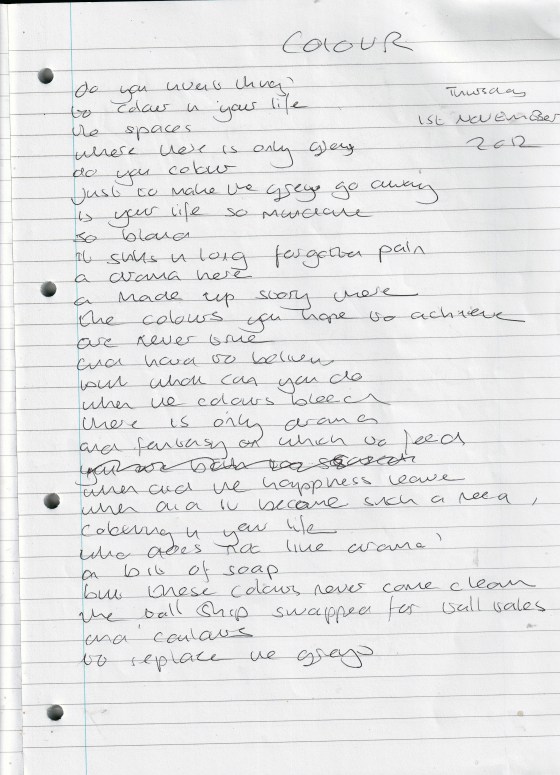 COLOUR
Thursday
1st NOVEMBER
2012
do you
to colour in your life
the spaces
where there is only greys
do you colour
just to make the greys go away
is your life so mundane
so bland
it sinks in long forgotten pain
a drama here
a made up story there
the colours you hope to achieve
are never true
and hard to believe
but what can you do
when the colours bleed
there is only drama
and fantasy on which to feed
when did the happiness leave
when did it become such a need,
colouring in your life
who does not like drama'
a bit of soap
but these colours never come clean
the tall ship swapped for tall tales
and colours
to replace the greys